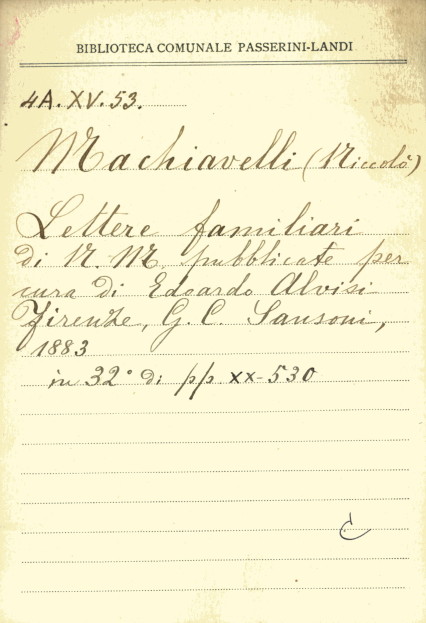 BIBLIOTECA COMUNALE PASSERINI-LANDI
4A.XV.53.
Machiavelli (Niccolò)
Lettere familiari
di N. M. pubblicate per
cura di Edoardo Alvisi
Firenze, G. C. Sansoni,
1883
in 32° di pp. xx-530
C